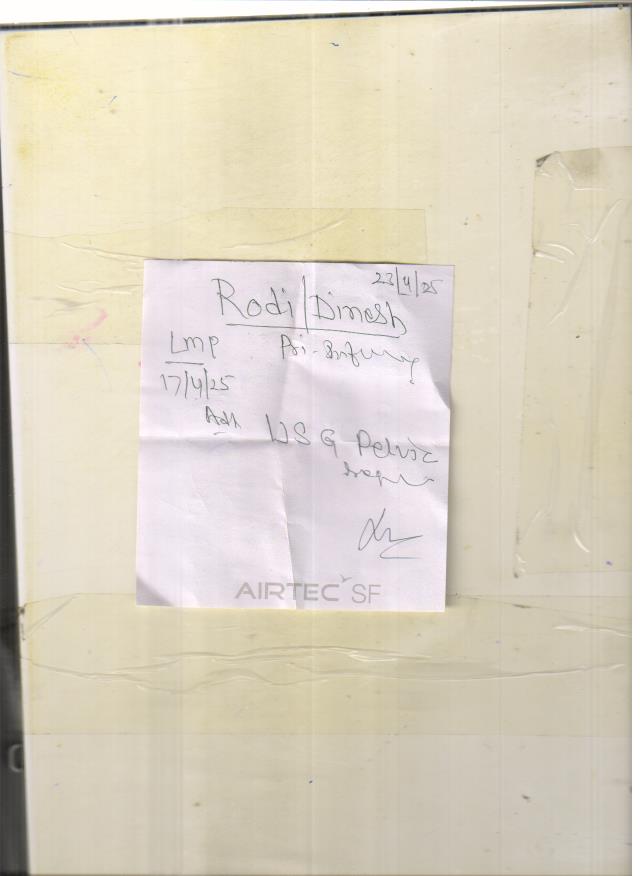 23/4/25
Rodi/Dimesh
LMP
17/4/25
Adv
USG Pelvic
AIRTEC SF